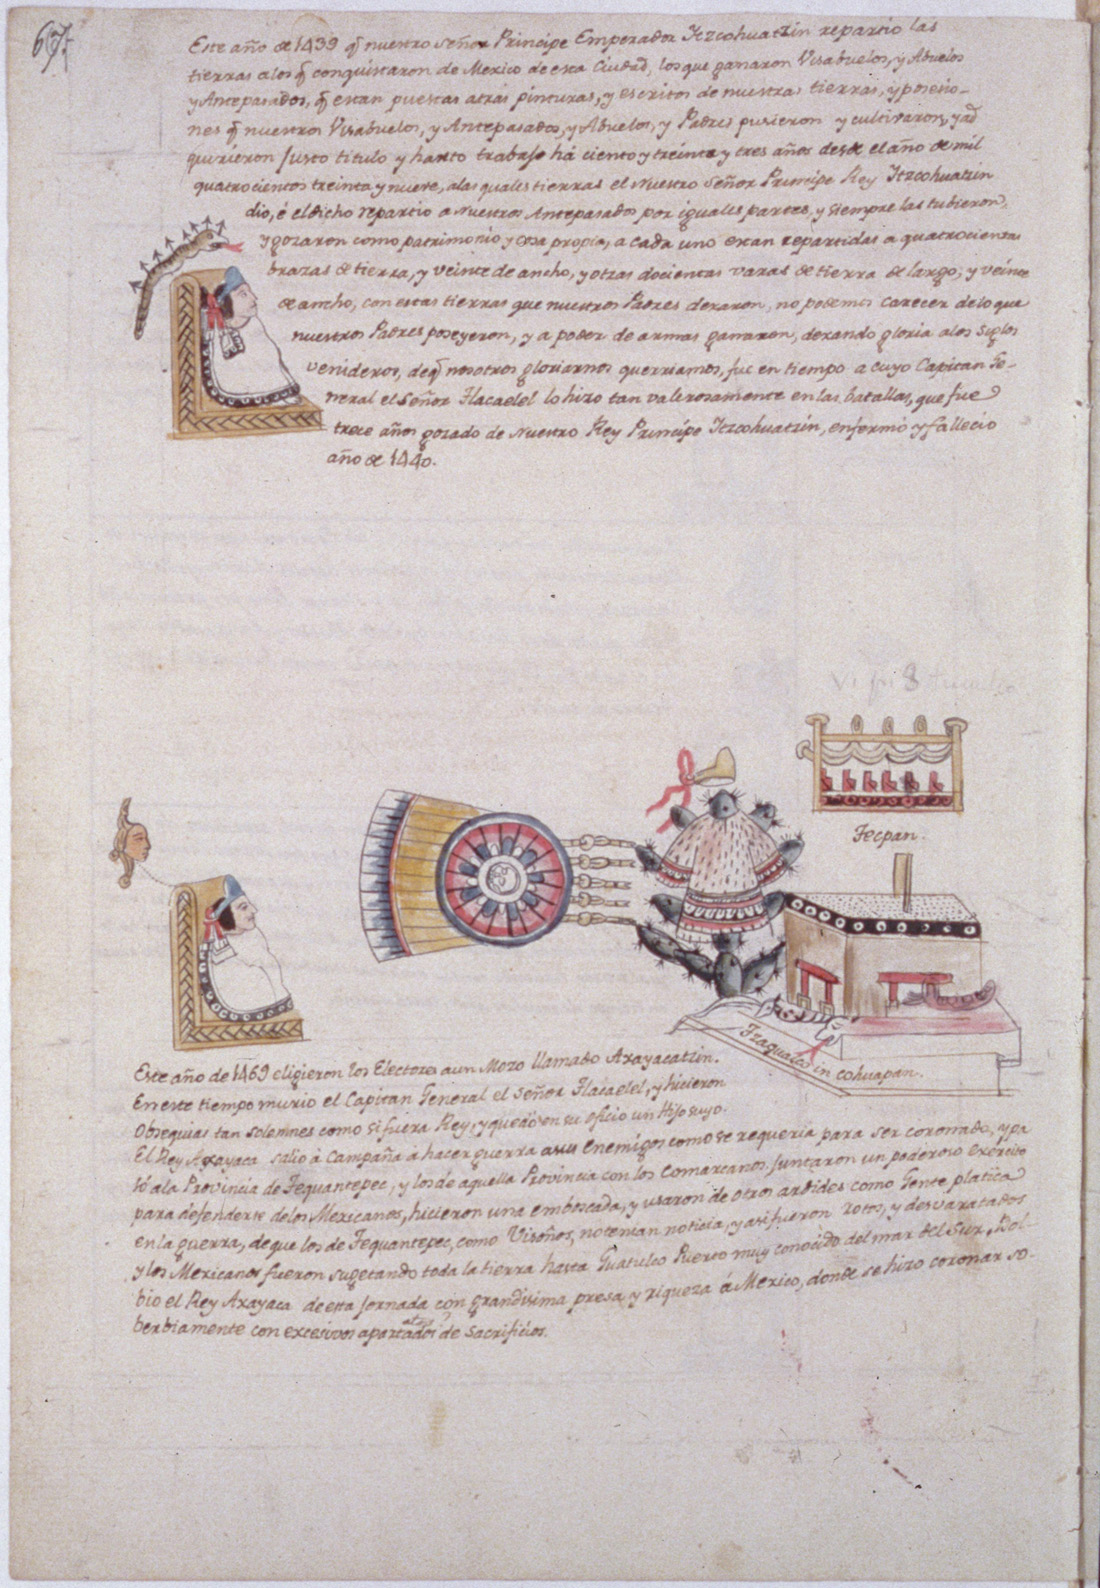 67.
Este año de 1439 q̃ nuestro Señor Principe Emperador Itzcohuatzin repartio las
tierras a los q̃ conquistaron de Mexico de esta Ciudad, los que ganaron Visabuelos, y Abuelos
y Antepasados, q̃ estan puestas atras pinturas, y escritos de nuestras tierras, y posesio-
nes q̃ nuestros Visabuelos, y Antepasados, y Abuelos, y Padres pusieron y cultivaron, y ad
quirieron justo titulo y harto trabajo há ciento y treinta y tres años desde el año de mil
quatrocientos treinta y nueve, a las quales tierras el Nuestro Señor Principe Rey Itzcohuatzin
dio, é el dicho repartio a Nuestros Antepasados por iguales partes, y siempre las tubieron,
y gozaron como patrimonio y cosa propia, a cada uno eran repartidas a quatrocientas
brazas de tierra, y veinte de ancho, y otras docientas varas de tierra de largo, y veinte
de ancho, con estas tierras que nuestros Padres dexaron, no podemos carecer de lo que
nuestros Padres poseyeron, y a poder de armas ganaron, dexando gloria a los siglos
venideros, de q̃ nosotros gloriarnos querriamos, fue en tiempo a cuyo Capitan Ge-
neral el Señor Tlacaelel lo hizo tan valerosamente en las batallas, que fue
trece años gozado de Nuestro Rey Principe Itzcohuatzin, enfermó y falleció
año de 1440.
Tecpan.
Tzaqualco in cohuapan.
Este año de 1469 eligieron los Electores a un Mozo llamado Axayacatzin.
En este tiempo murio el Capitan General el Señor Tlacaelel, y hicieron
Obsequias tan solemnes como si fuera Rey, y quedó en su oficio un Hijo suyo.
El Rey Axayaca salió á Campaña á hacer guerra a sus Enemigos como se requeria para ser coronado, y pa
só a la Provincia de Tequantepec, y los de aquella Provincia con los Comarcanos, juntaron un poderoso Exército
para defenderse de los Mexicanos, hicieron una emboscada, y usaron de otros ardides como Gente platica
en la guerra, de que los de Tequantepec, como Visoños, no tenian noticia, y asi fueron rotos, y desvaratados
y los Mexicanos fueron sugetando toda la tierra hasta Guatulco Puerto muy conocido del mar del Sur, Vol-
bio el Rey Axayaca de esta jornada con grandisima presa y riqueza á Mexico, donde se hizo coronar so-
berbiamente con excesivos apartados de Sacrificios.